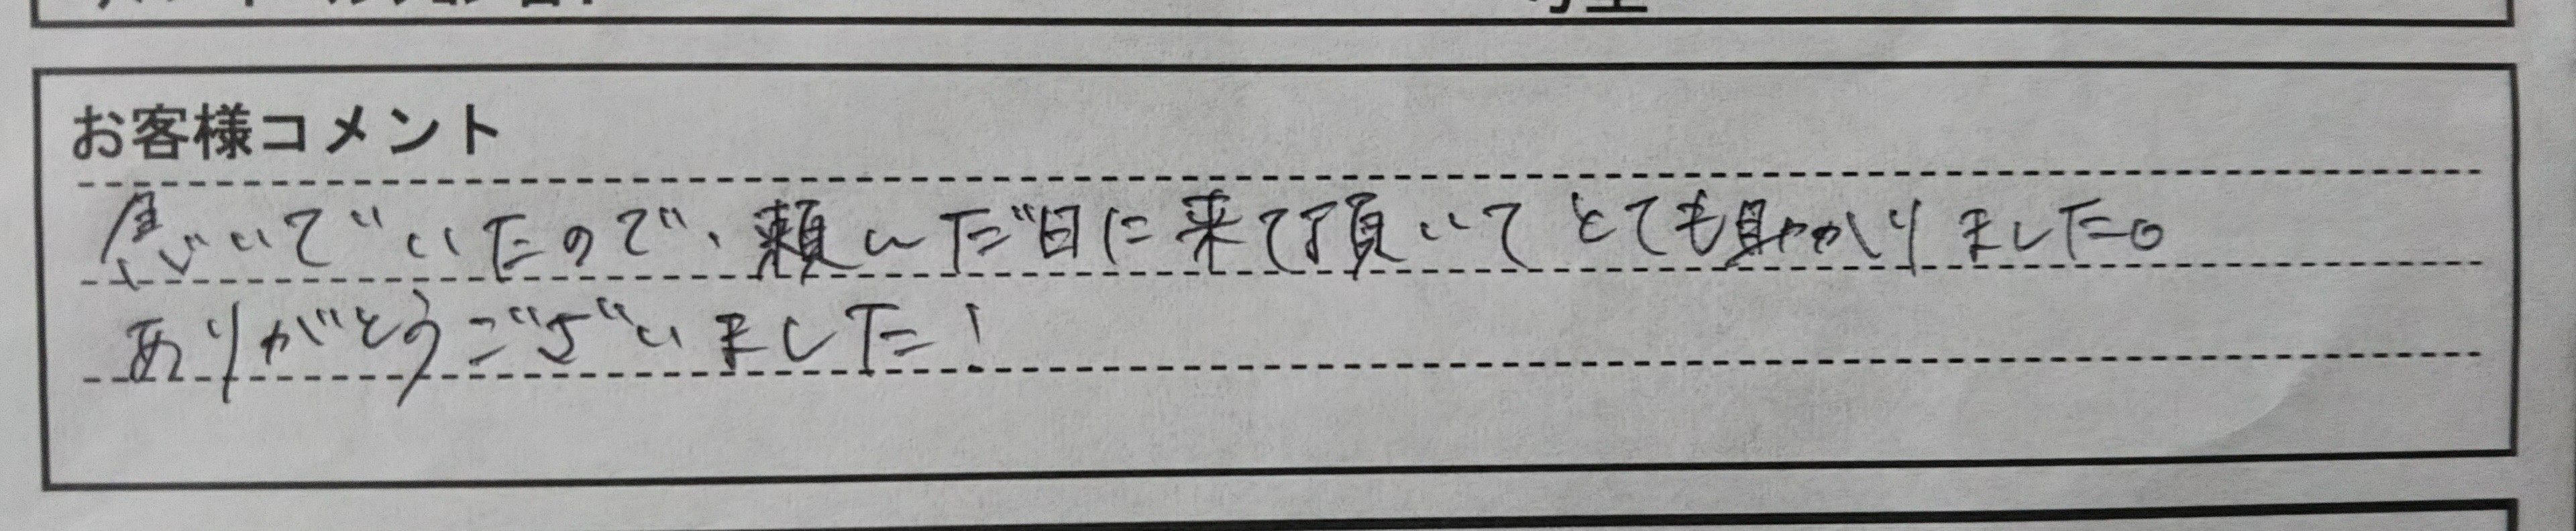 お客様コメント
急いでいたので、頼んだ日に来て頂いてとても助かりました。
ありがとうございました!